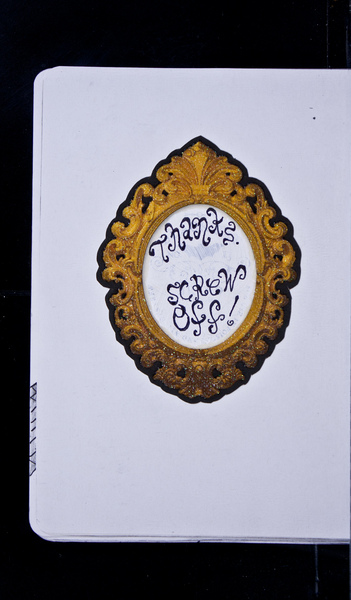 Thanks.
SCREW
OFF!